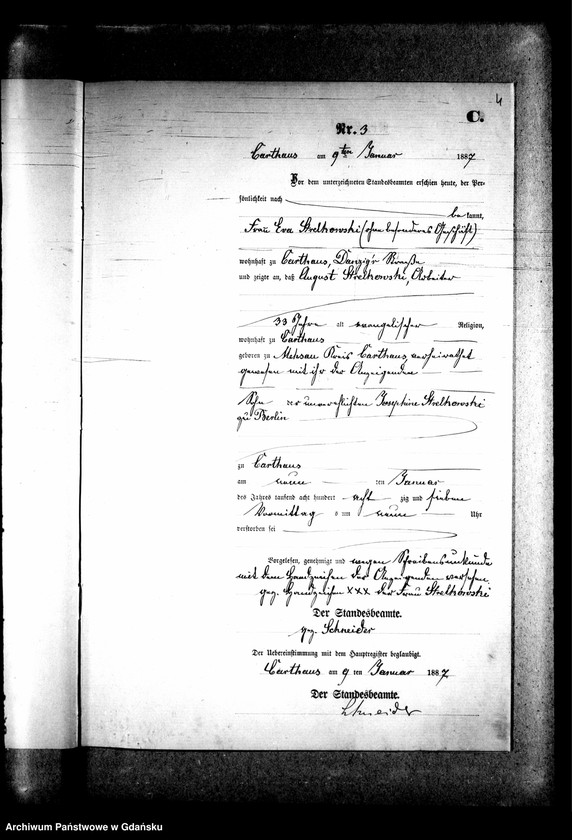 4
C.
Nr. 3
Carthaus am 9ten Januar 1887
Vor dem unterzeichneten Standesbeamten erschien heute, der Per-
sönlichkeit nach
be kannt,
Frau Eva Strelkowski (ohne besonderes Geschäft)
wohnhaft zu Carthaus, Danzig'r Straße
und zeigte an, daß August Strelkowski, Arbeiter
33 Jahre alt evangelischer Religion,
wohnhaft zu Carthaus
geboren zu Mehsau Kreis Carthaus, verheirathet
gewesen mit ihr der Anzeigenden
Sohn der unverehelichten Josephine Strelkowski
zu Berlin
zu Carthaus
am neun ten Januar
des Jahres tausend acht hundert acht zig und sieben
Vormittag s um neun Uhr
verstorben sei
Vorgelesen, genehmigt und wegen Schreibensunkunde
mit dem Handzeichen der Anzeigenden versehen.
gez. Handzeichen XXX der Frau Strelkowski
Der Standesbeamte.
gez. Schneider
Der Uebereinstimmung mit dem Hauptregister beglaubigt.
Carthaus am 9 ten Januar 1887
Der Standesbeamte.
Schneider
Archiwum Państwowe w Gdańsku